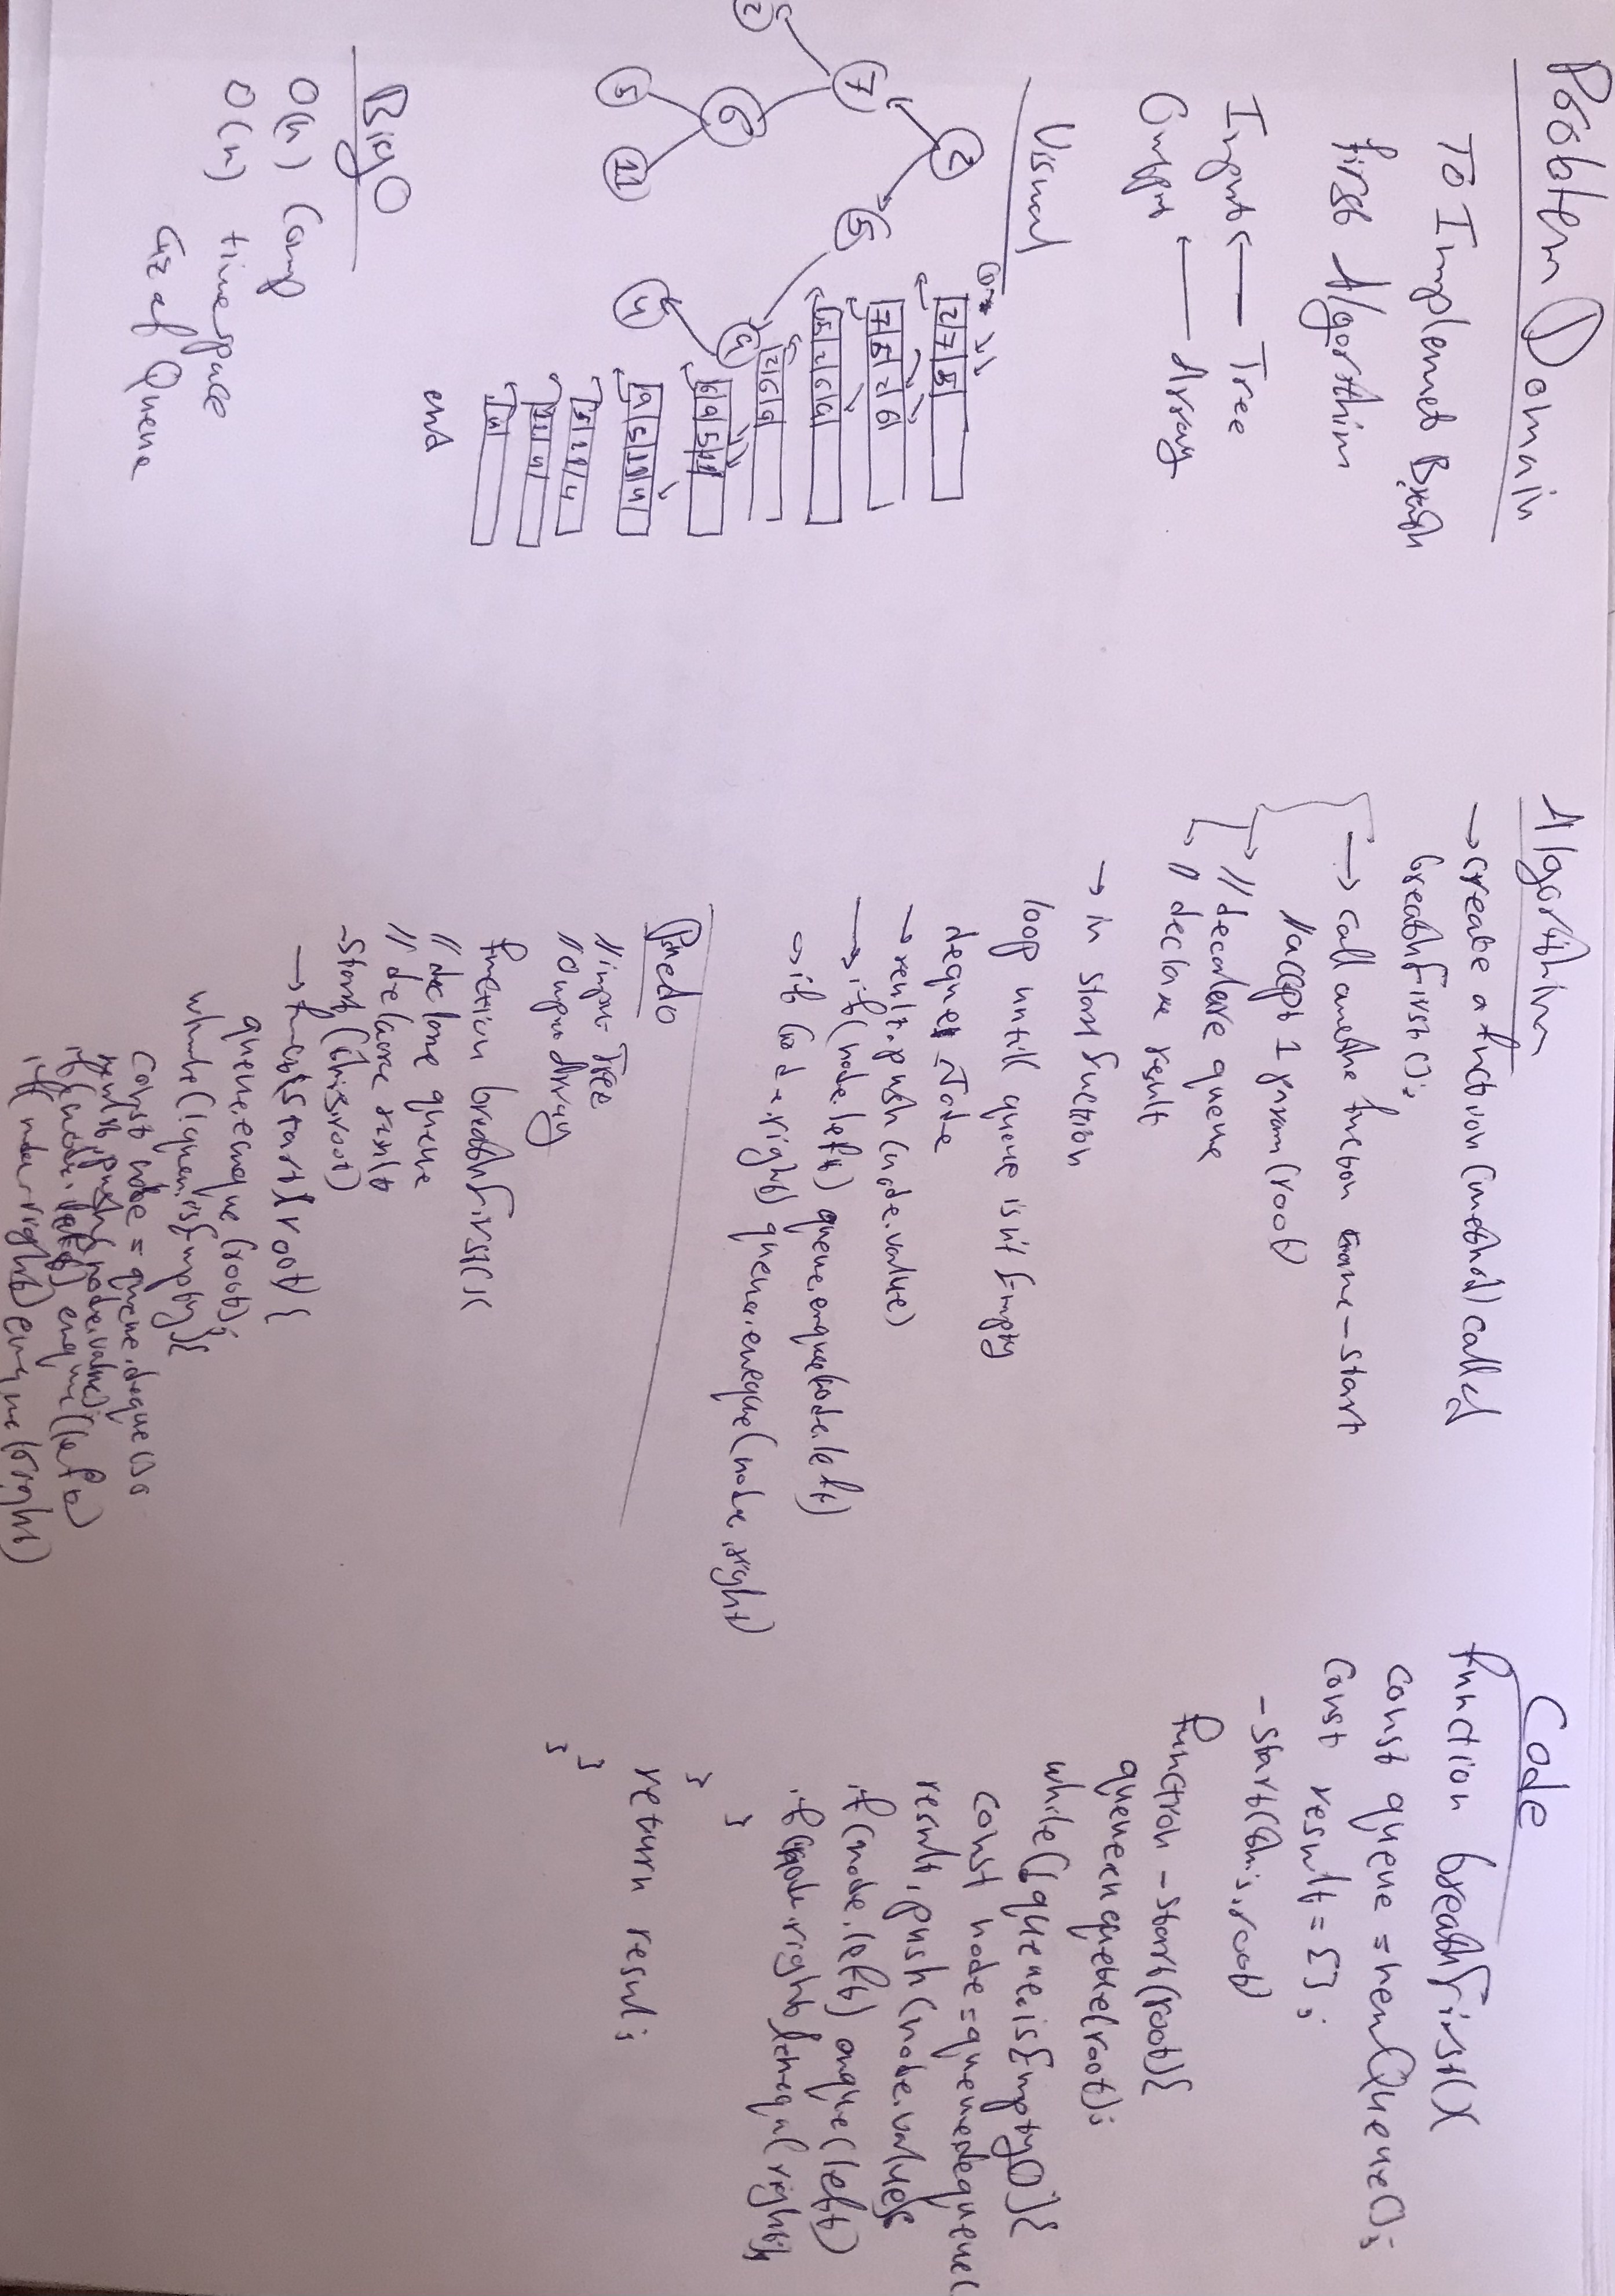 Problem Domain
To Implemet Breath
first Algorithim
Input ← Tree
Output ← Array
Visual
2
7 5
2 6 9
5 11 4
2 7 5
7 5 2 6
5 2 6 9
2 6 9
6 9 5 11
9 5 11 4
5 11 4
11 4
4
end
Big O
O(n) Comp
O(n) time space
of Queue
Algorithim
→ create a function (method) called
breathFirst();
→ call function name _start
// accept 1 param (root)
→ // decalere queue
// declare result
→ in start fuction
loop untill queue isn't Empty
deque Node
→ result.push(node.value)
→ if(node.left) queue.enque(node.left)
→ if (node.right) queue.eneque(node.right)
// input Tree
// Output Array
function breathFirst(){
// declare queue
// delaore result
_start (this.root)
→ funct start(root) {
queue.enque (root);
while(!queu.isEmpty){
const node = queue.deque();
result.push(node.value)
if(node.left) enque(left)
if(node.right) enque(right)
Code
function breathFirst(){
const queue = new Queue();
const result = [];
_start(this.root)
function _start(root){
queue.enqueue(root);
while(!queue.isEmpty()){
const node = queue.dequeue(
result.push(node.value);
if(node.left) enque(left)
if(node.right) enequ(right);
}
}
return resul;
}
}